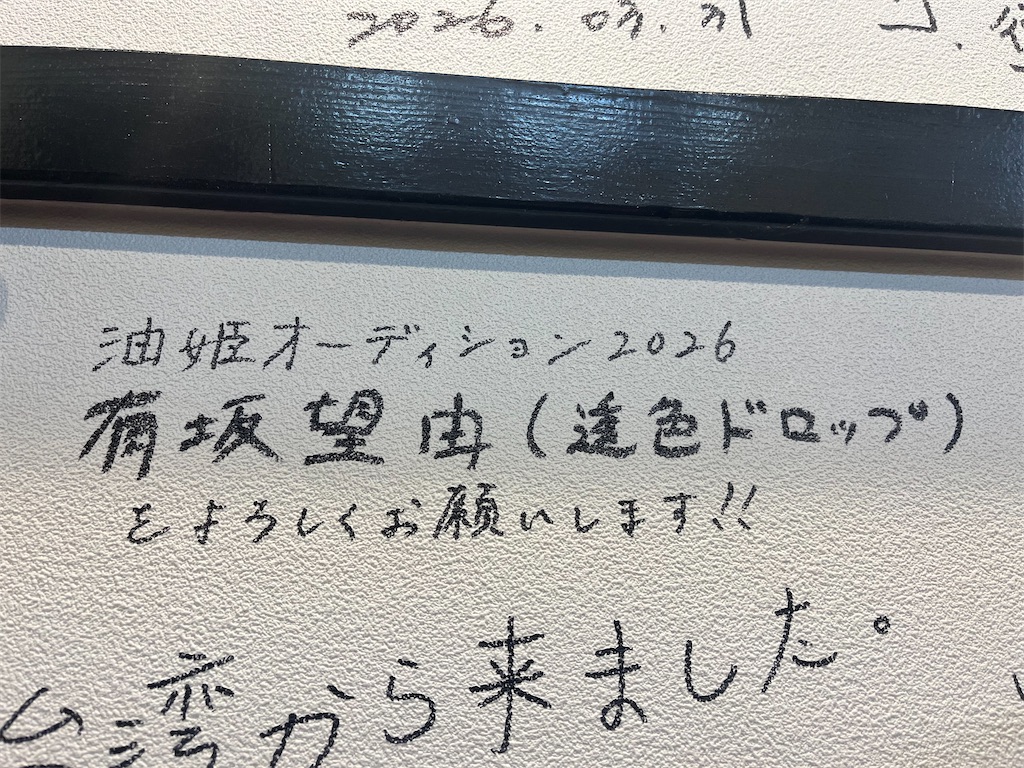 2026.03.21
油姫オーディション2026
有坂望由(遙色ドロップ)
をよろしくお願いします!!
台湾から来ました。